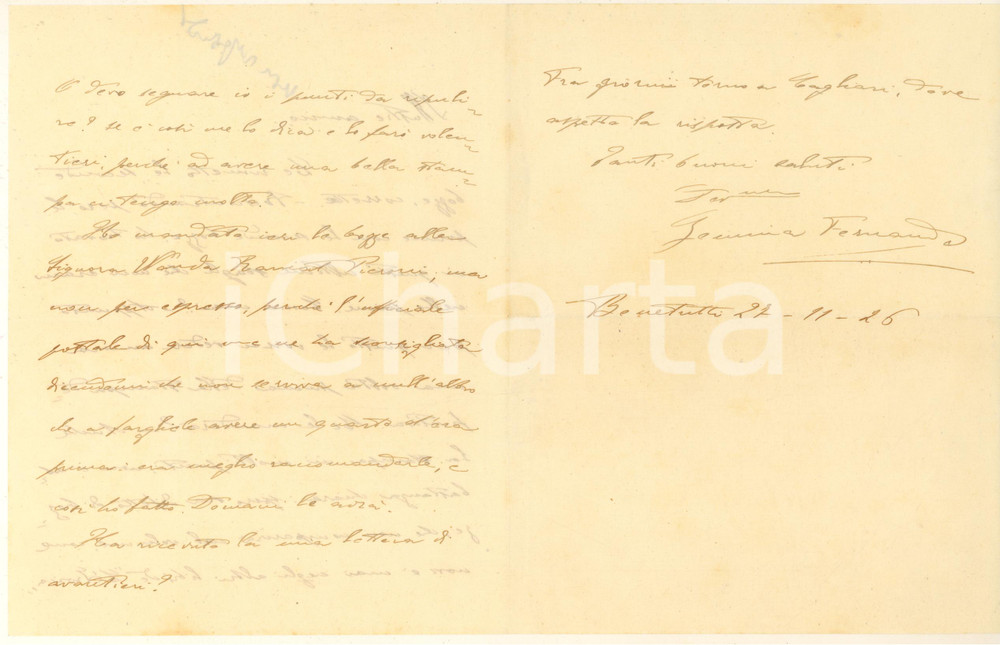 O devo segnare io i punti da ripuli-
re? se è così me lo dica e lo farò volen-
tieri, perché ad avere una bella stam-
pa ci tengo molto.
Ho mandato ieri le bozze alla
Signora Wanda Pieroni, ma
non per espresso, perché l'ufficiale
postale di qui me ne ha sconsigliata
dicendomi che non serviva a null'altro
che a fargliele avere un quarto d'ora
prima: era meglio raccomandarle, e
così ho fatto. Domani le avrà.
Ha ricevuto la mia lettera di
avantieri?
Fra giorni torno a Cagliari, dove
aspetto la risposta.
Tanti buoni saluti
Gennina Fernando
Benetutti 21-11-26
iCharta